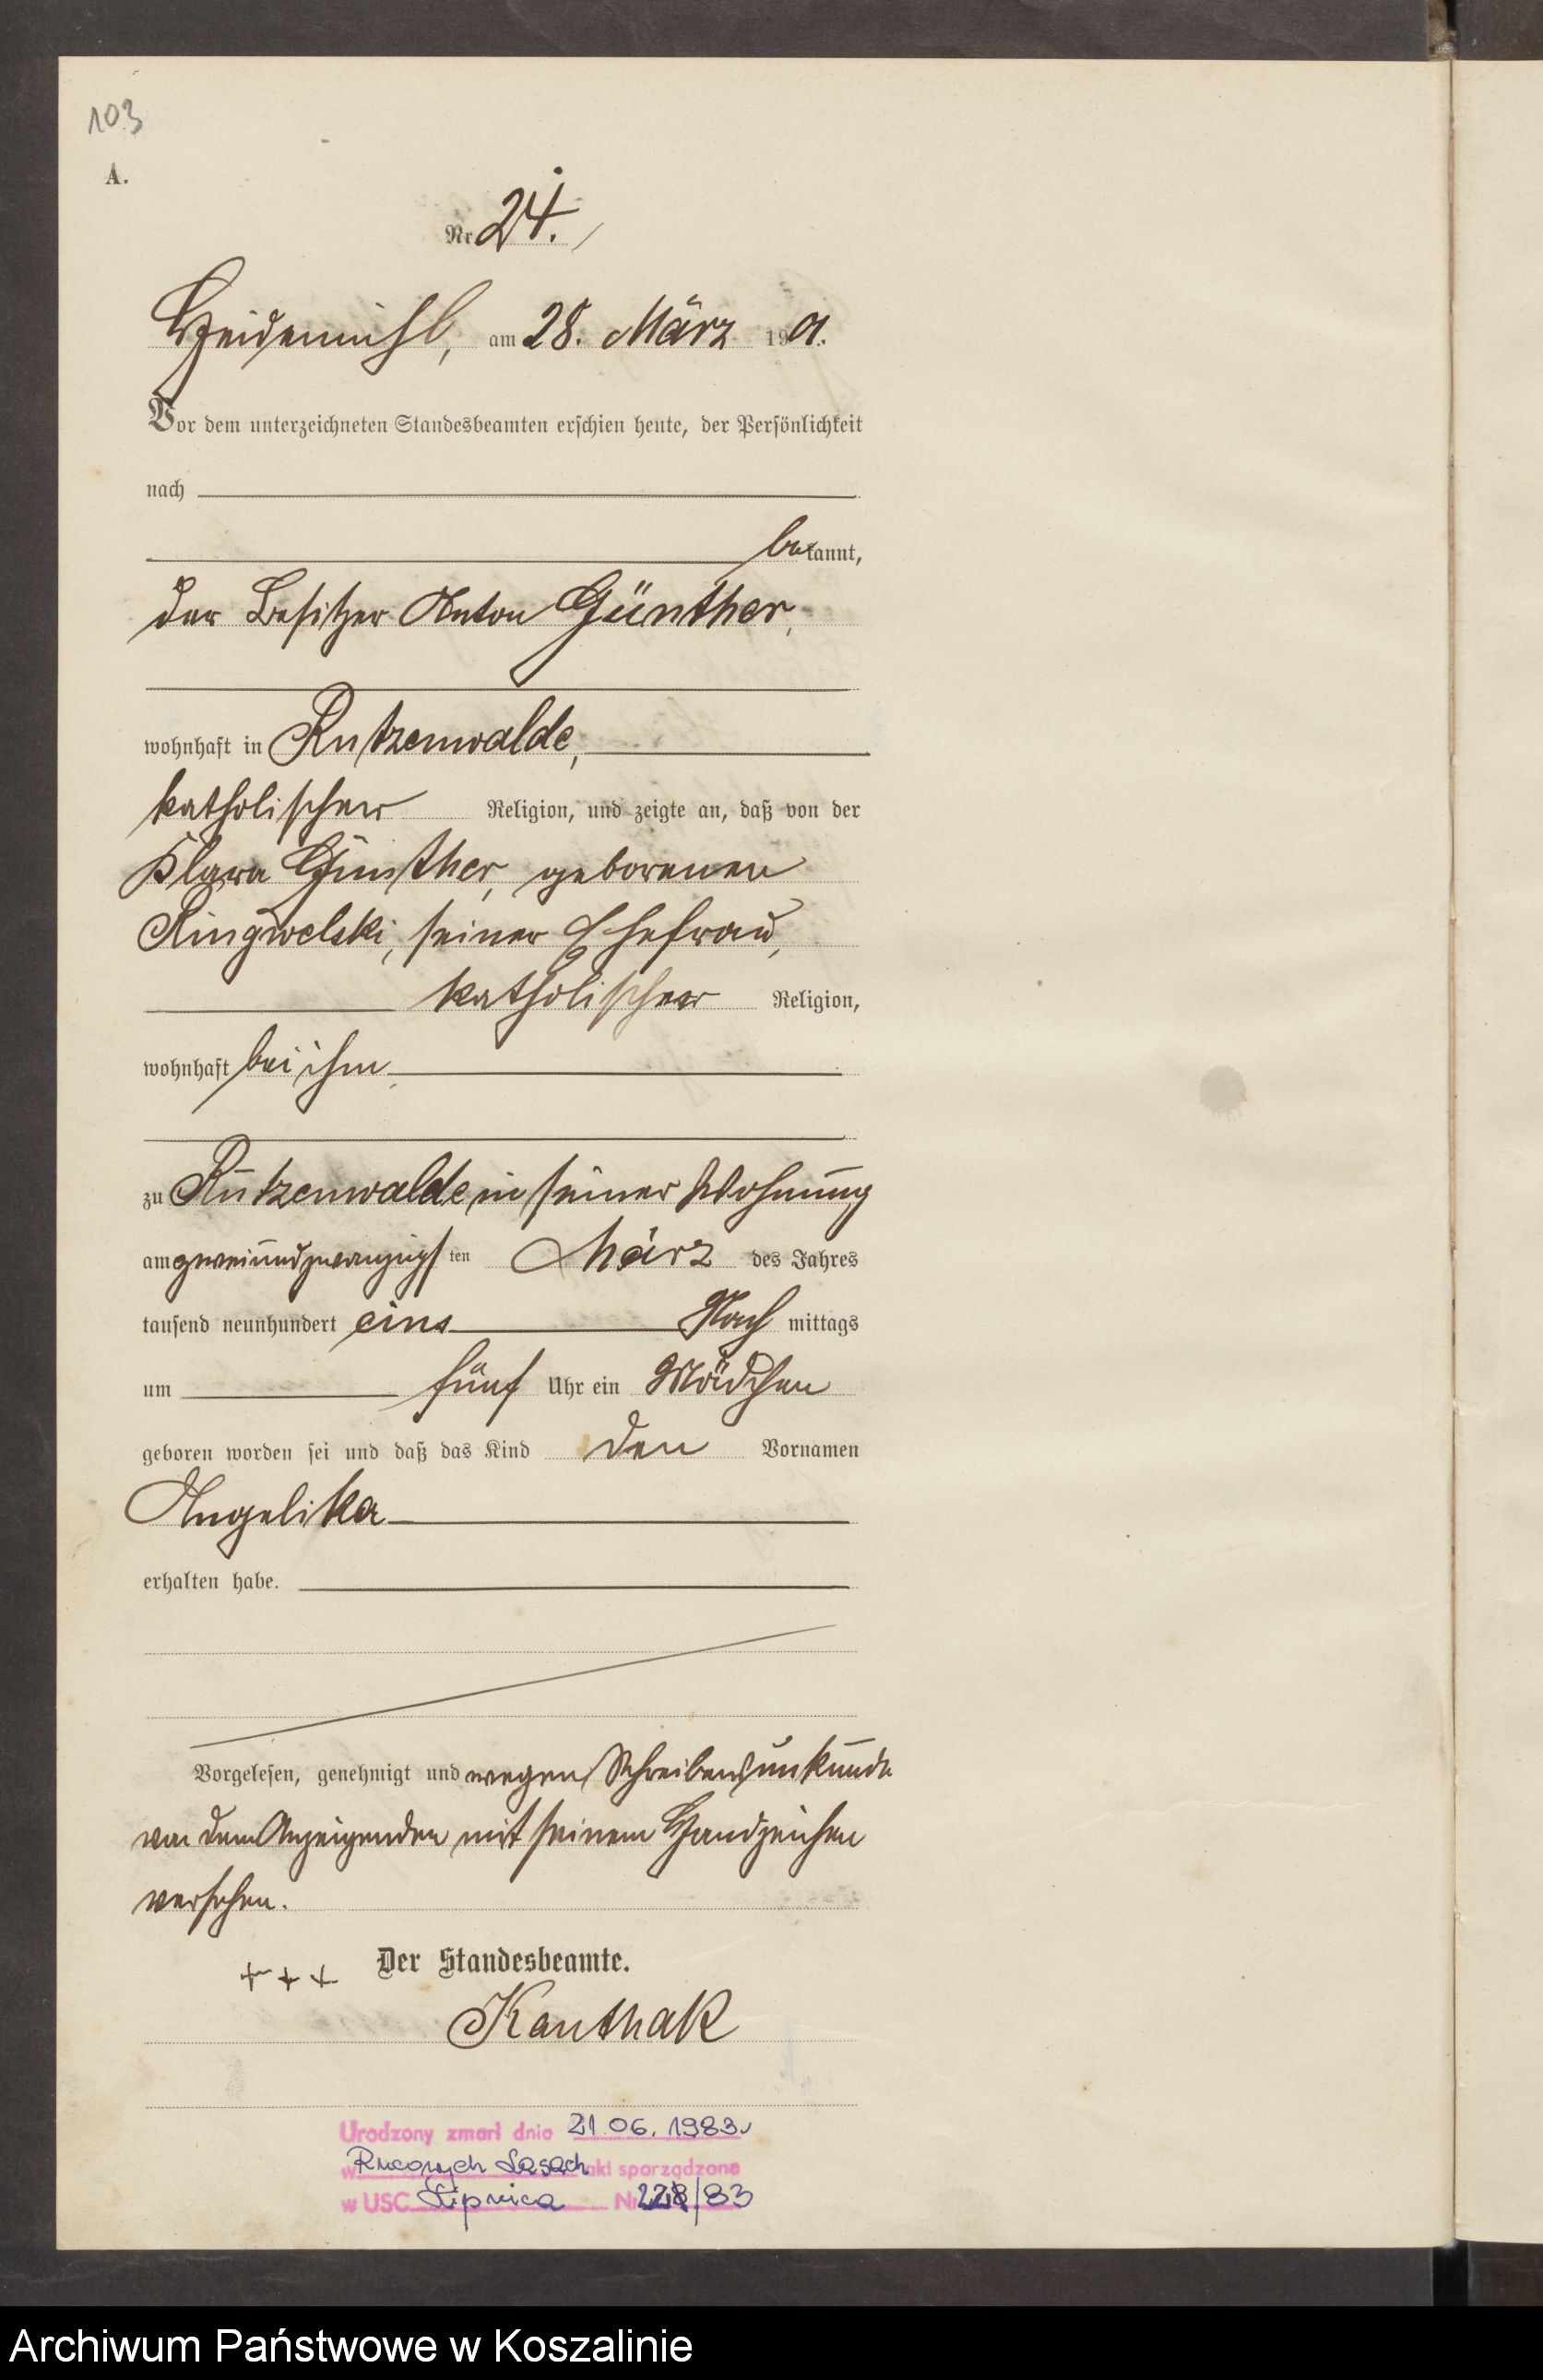 103
A.
Nr 24.
Heidemühl, am 28. März 1901.
Vor dem unterzeichneten Standesbeamten erschien heute, der Persönlichkeit
nach
bekannt,
der Besitzer Anton Günther,
wohnhaft in Rutzenwalde,
katholischer Religion, und zeigte an, daß von der
Klara Günther, geborenen
Ringwelski, seiner Ehefrau,
katholischer Religion,
wohnhaft bei ihm,
zu Rutzenwalde in seiner Wohnung
am zweiundzwanzigsten März des Jahres
tausend neunhundert eins Nachmittags
um fünf Uhr ein Mädchen
geboren worden sei und daß das Kind den Vornamen
Angelika
erhalten habe.
Vorgelesen, genehmigt und wegen Schreibensunkunde
von dem Anzeigenden mit seinem Handzeichen
versehen.
+ + + Der Standesbeamte.
Kanthak
Urodzony zmarł dnia 21.06.1983
w Lasach akt sporządzono
w USC Lipnica Nr /83
Archiwum Państwowe w Koszalinie